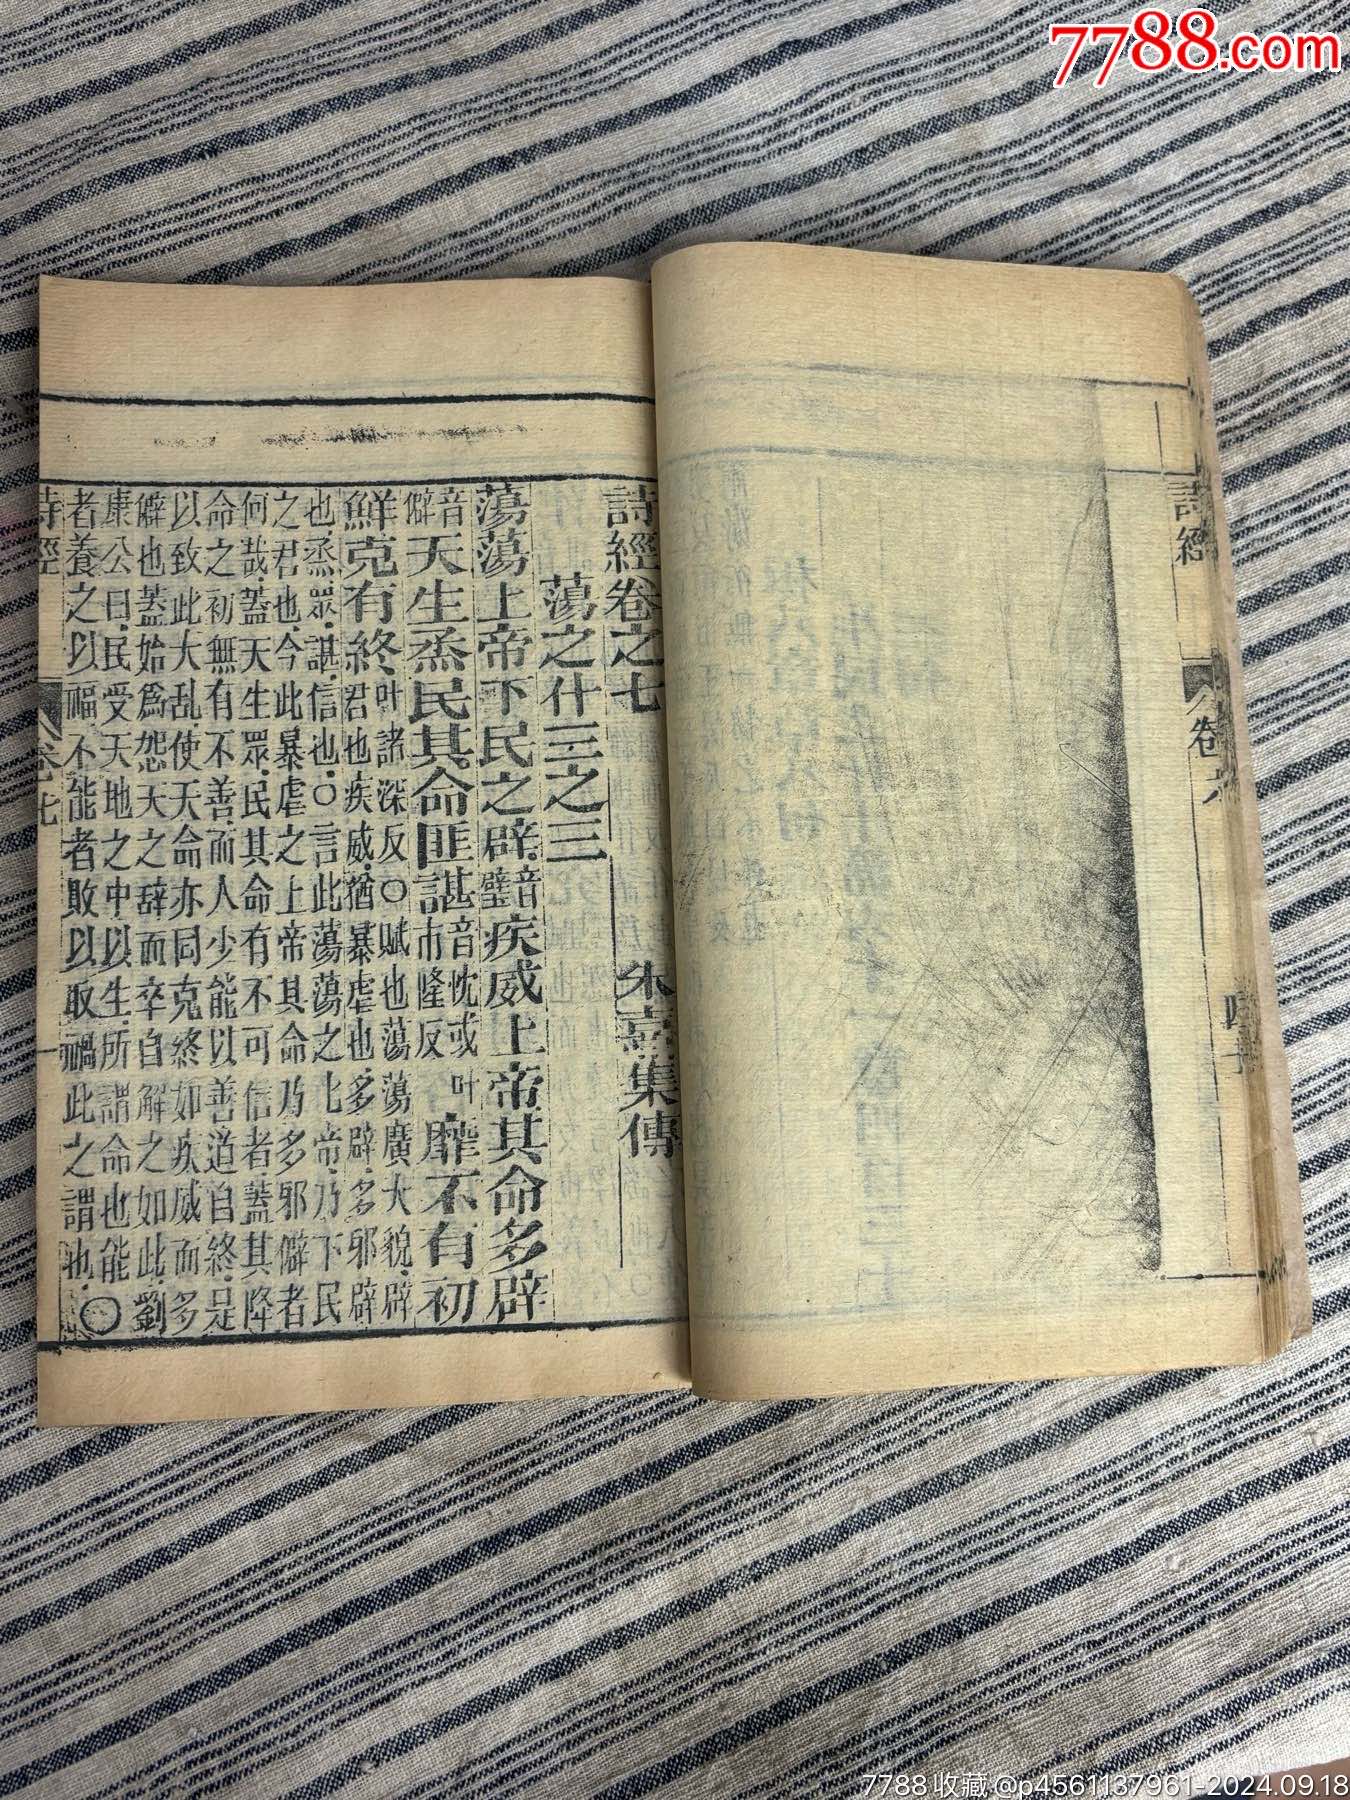 7788.com
詩經
卷六
四十
詩經卷之七
朱熹集傳
蕩之什三之三
蕩蕩上帝下民之辟音璧疾威上帝其命多辟
音僻天生烝民其命匪諶音忱或叶市隆反靡不有初
鮮克有終叶諸深反○賦也蕩蕩廣大貌辟君也疾威猶暴虐也多辟多邪辟
也烝眾諶信也○言此蕩蕩之上帝乃下民
之君也今此暴虐之上帝其命乃多邪僻者
何哉蓋天生眾民其命有不可信者蓋其降
命之初無有不善而人少能以善道自終是
以致此大亂使天命亦同克終如疾威而多
僻也蓋始爲怨天之辭而卒自解之如此劉
康公曰民受天地之中以生所謂命也能
者養之以福不能者敗以取禍此之謂也○
詩經
卷七
一
7788收藏@p4561137961-2024.09.18